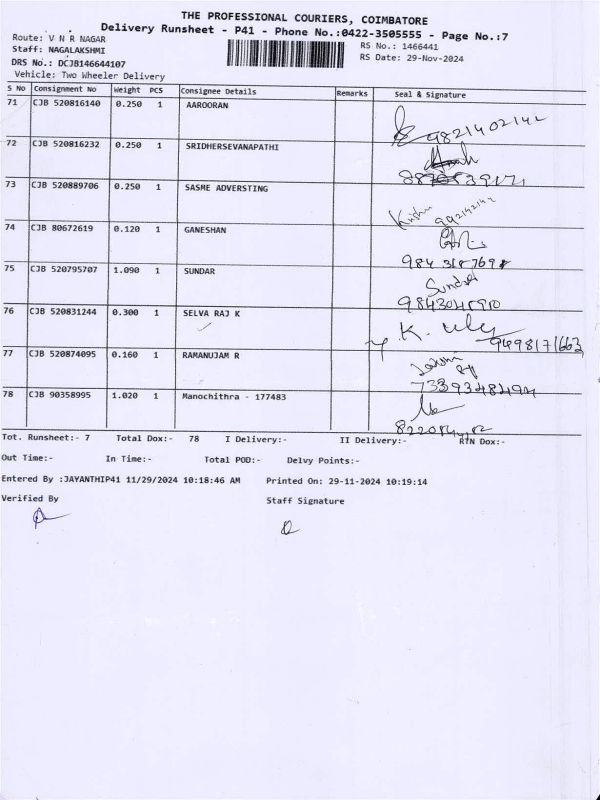 THE PROFESSIONAL COURIERS, COIMBATORE
Delivery Runsheet - P41 - Phone No.:0422-3505555 - Page No.:7
Route: V N R NAGAR
RS No.: 1466441
Staff: NAGALAKSHMI
RS Date: 29-Nov-2024
DRS No.: DCJB146644107
Vehicle: Two Wheeler Delivery
S No Consignment No Weight PCS Consignee Details Remarks Seal & Signature
71 CJB 520816140 0.250 1 AAROORAN
9821402142
72 CJB 520816232 0.250 1 SRIDHERSEVANAPATHI
73 CJB 520889706 0.250 1 SASRE ADVERSTING
74 CJB 80672619 0.120 1 GANESHAN
75 CJB 520795707 1.090 1 SUNDAR
Sundar
76 CJB 520831244 0.300 1 SELVA RAJ K
9498171663
77 CJB 520874095 0.160 1 RAMANUJAM R
7339348494
78 CJB 90358995 1.020 1 Manochithra - 177483
Tot. Runsheet:- 7 Total Dox:- 78 I Delivery:- II Delivery:- RTN Dox:-
Out Time:- In Time:- Total POD:- Delvy Points:-
Entered By :JAYANTHIP41 11/29/2024 10:18:46 AM Printed On: 29-11-2024 10:19:14
Verified By Staff Signature